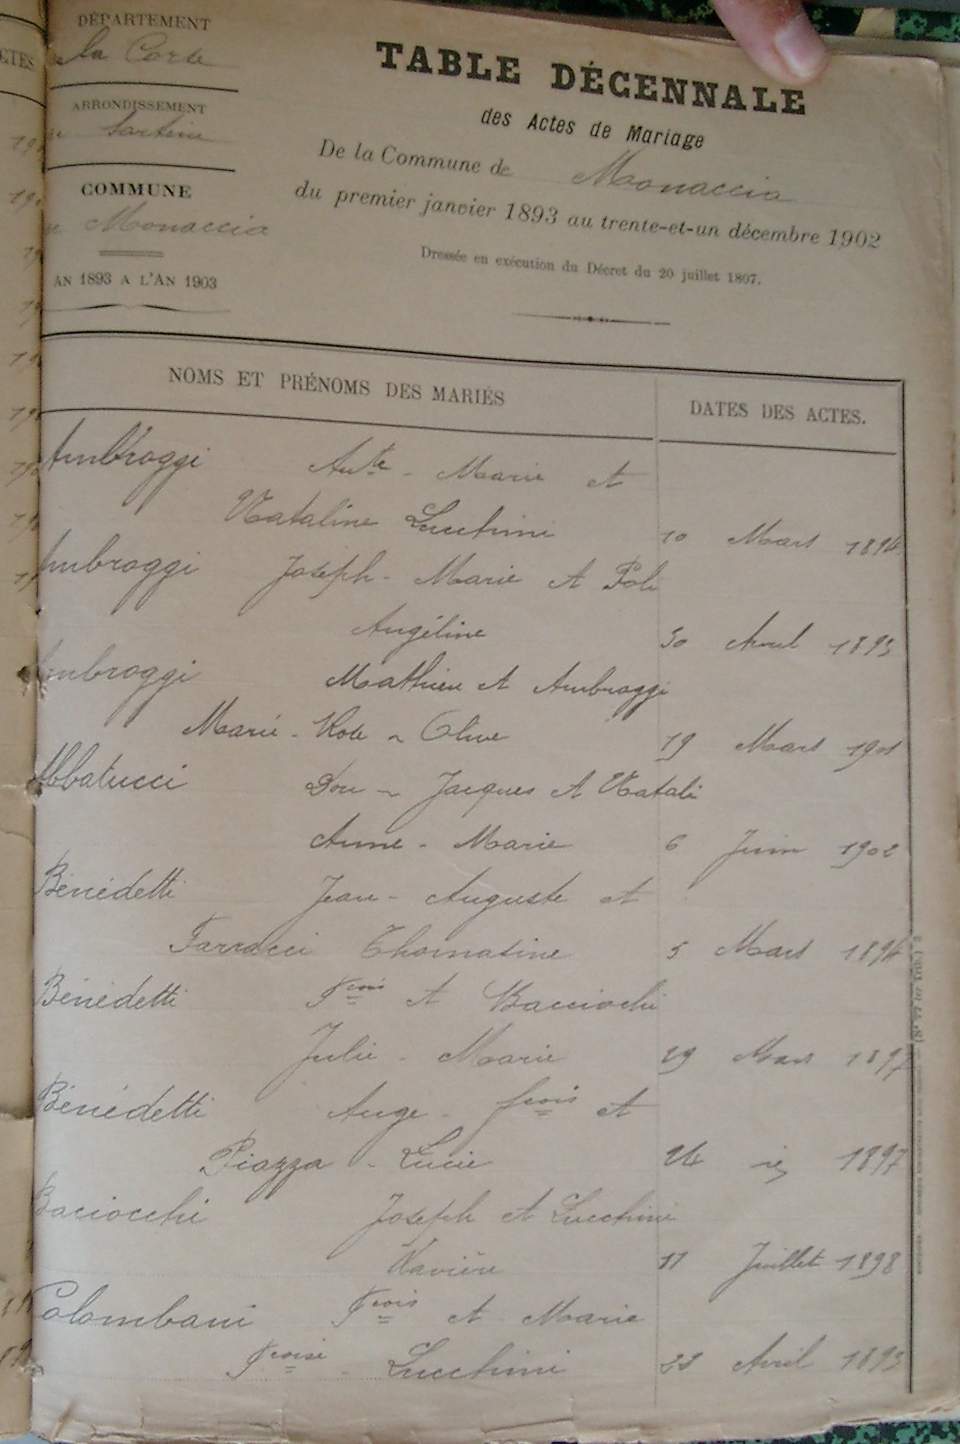 DÉPARTEMENT
la Corse
ARRONDISSEMENT
Sartène
COMMUNE
Monaccia
AN 1893 A L'AN 1903
TABLE DÉCENNALE
des Actes de Mariage
De la Commune de Monaccia
du premier janvier 1893 au trente-et-un décembre 1902
Dressée en exécution du Décret du 20 juillet 1807.
NOMS ET PRÉNOMS DES MARIÉS DATES DES ACTES.
Ambroggi Ante - Marie et
Nataline Lucchini 10 Mars 1894
Ambroggi Joseph - Marie et Poli
Angéline 30 Avril 1893
Ambroggi Mathieu et Ambroggi
Marie - Rose - Olive 19 Mars 1901
Abbatucci Don - Jacques et Natali
Anne - Marie 6 Juin 1902
Bénédetti Jean - Auguste et
Farracci Thomasine 5 Mars 1894
Bénédetti Fcois et Bacciochi
Julie - Marie 29 Mars 1897
Bénédetti Ange - fcois et
Piazza - Lucie 24 1897
Baciocchi Joseph et Lucchini
Xavière 11 Juillet 1898
Colombani Fcois et Marie
Fcoise - Lucchini 23 Avril 1893